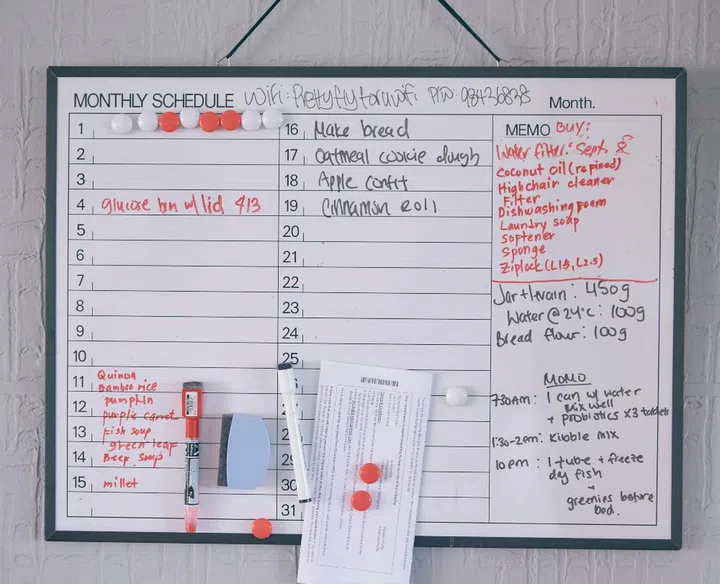 MONTHLY SCHEDULE WiFi: Prettyflyforawifi P/W: 98426838 Month.
1
2
3
4 glucose bm w/ lid 413
5
6
7
8
9
10
11 Quinoa
Bamboo rice
12 pumpkin
purple carrot
13 fish soup
green leaf
14 Beef soup
15 millet
16 Make bread
17 Oatmeal cookie dough
18 Apple confit
19 Cinnamon roll
20
21
22
23
24
25
29
30
31
MEMO BUY:
Water filter: Sept
Coconut oil (refined)
Highchair cleaner
Filter
Dishwashing foam
Laundry soap
Softener
Sponge
Ziplock (L15, L2.5)
Jar + levain: 450g
Water @ 24°c: 100g
Bread flour: 100g
MOMO
7:30AM: 1 can w/ water
mix well
+ probiotics x3 tablets
1:30-2pm: Kibble mix
10pm: 1 tube + freeze
day fish
+
greenies before
bed.